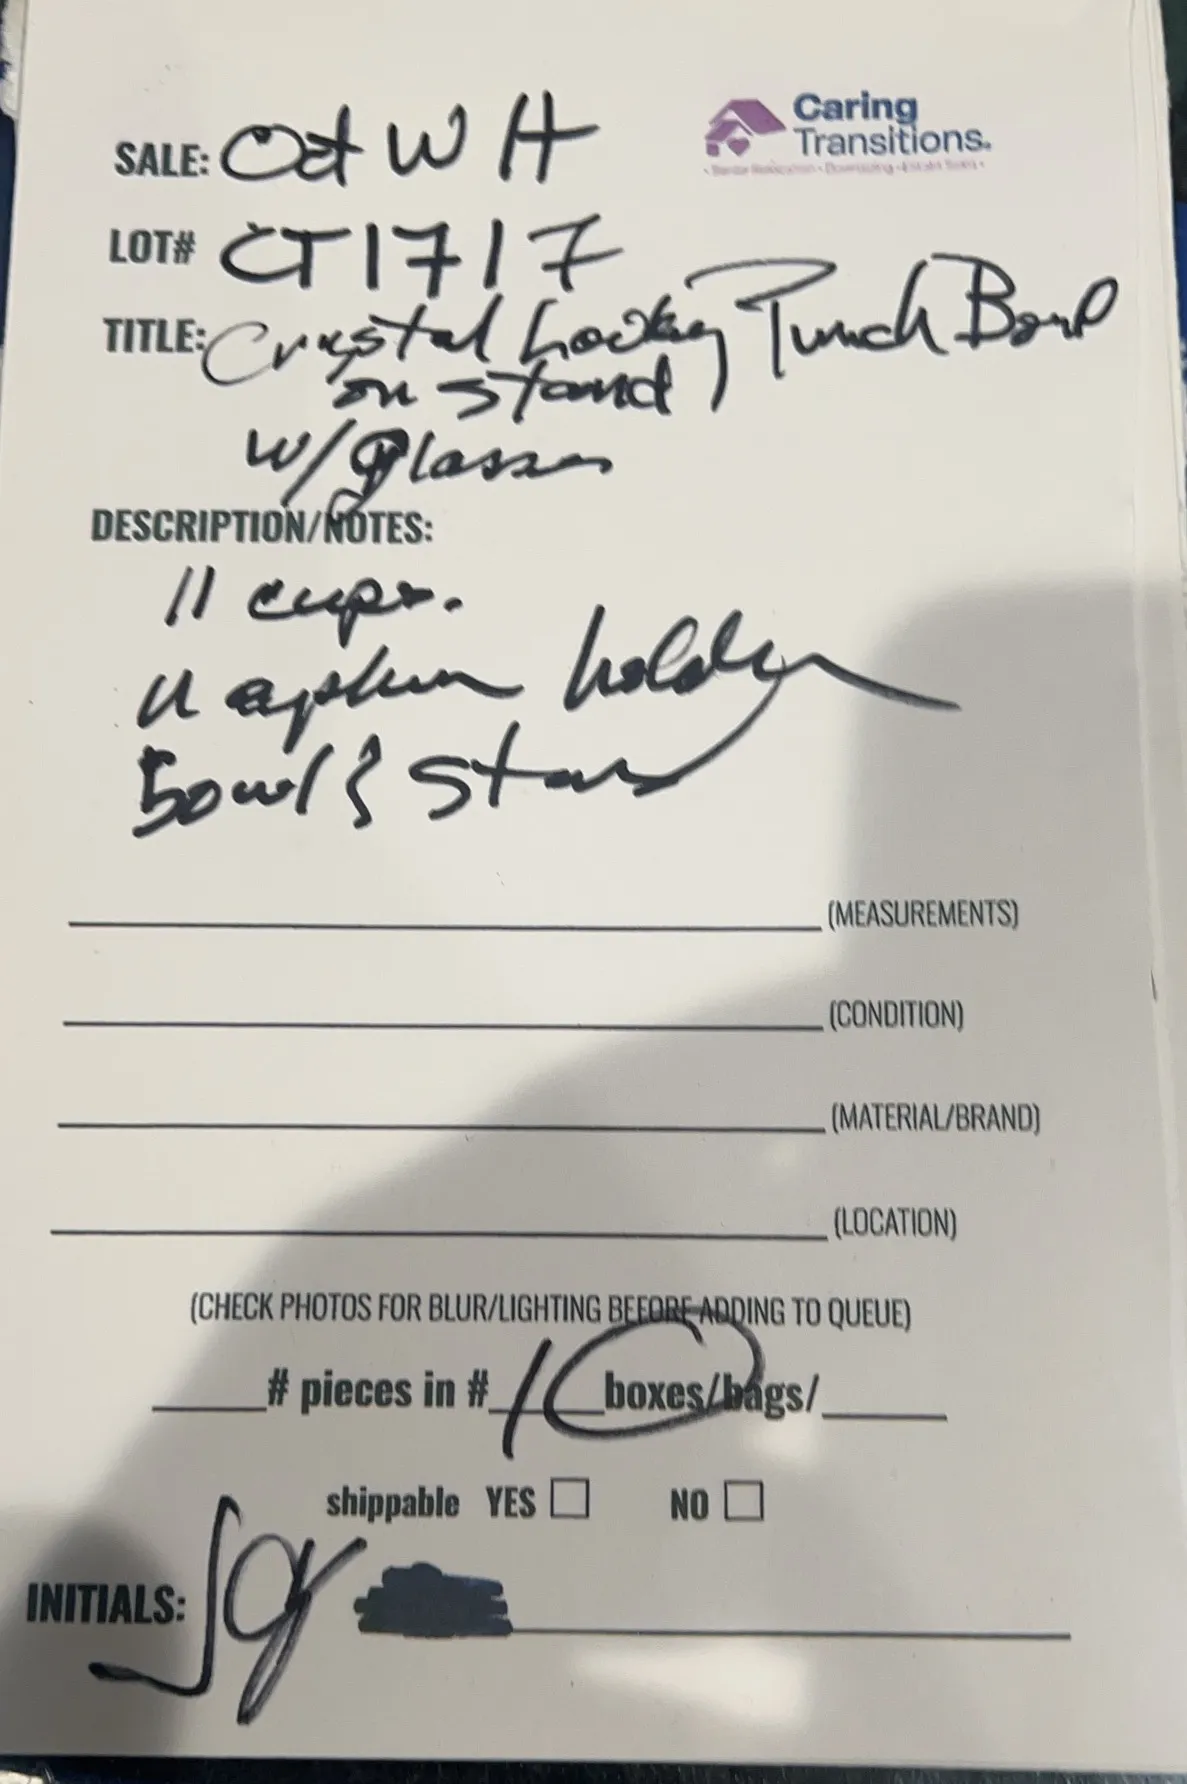 Caring
Transitions.
SALE: Oct WH
LOT# CT1717
TITLE: Crystal looking Punch Bowl
on stand
w/glasses
DESCRIPTION/NOTES:
11 cups.
napkin holder
bowl & stand
(MEASUREMENTS)
(CONDITION)
(MATERIAL/BRAND)
(LOCATION)
(CHECK PHOTOS FOR BLUR/LIGHTING BEFORE ADDING TO QUEUE)
# pieces in # 1 boxes/bags/
shippable YES NO
INITIALS: